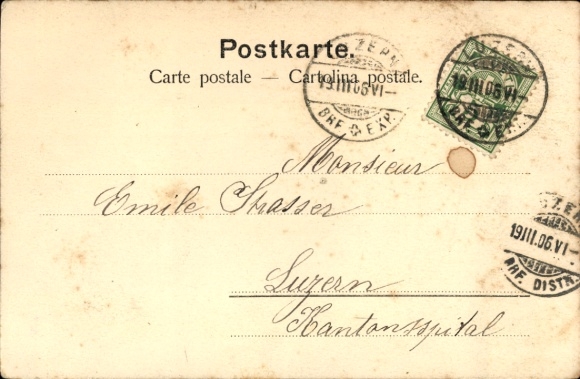 Postkarte.
Carte postale — Cartolina postale.
LUZERN
19.III.06.VI—
BRF. EXP.
LUZERN
19.III.06.VI—
BRF. EXP.
Monsieur
Emile Strasser
LUZERN
19.III.06.VI—
BRF. DISTR.
Luzern
Kantonsspital